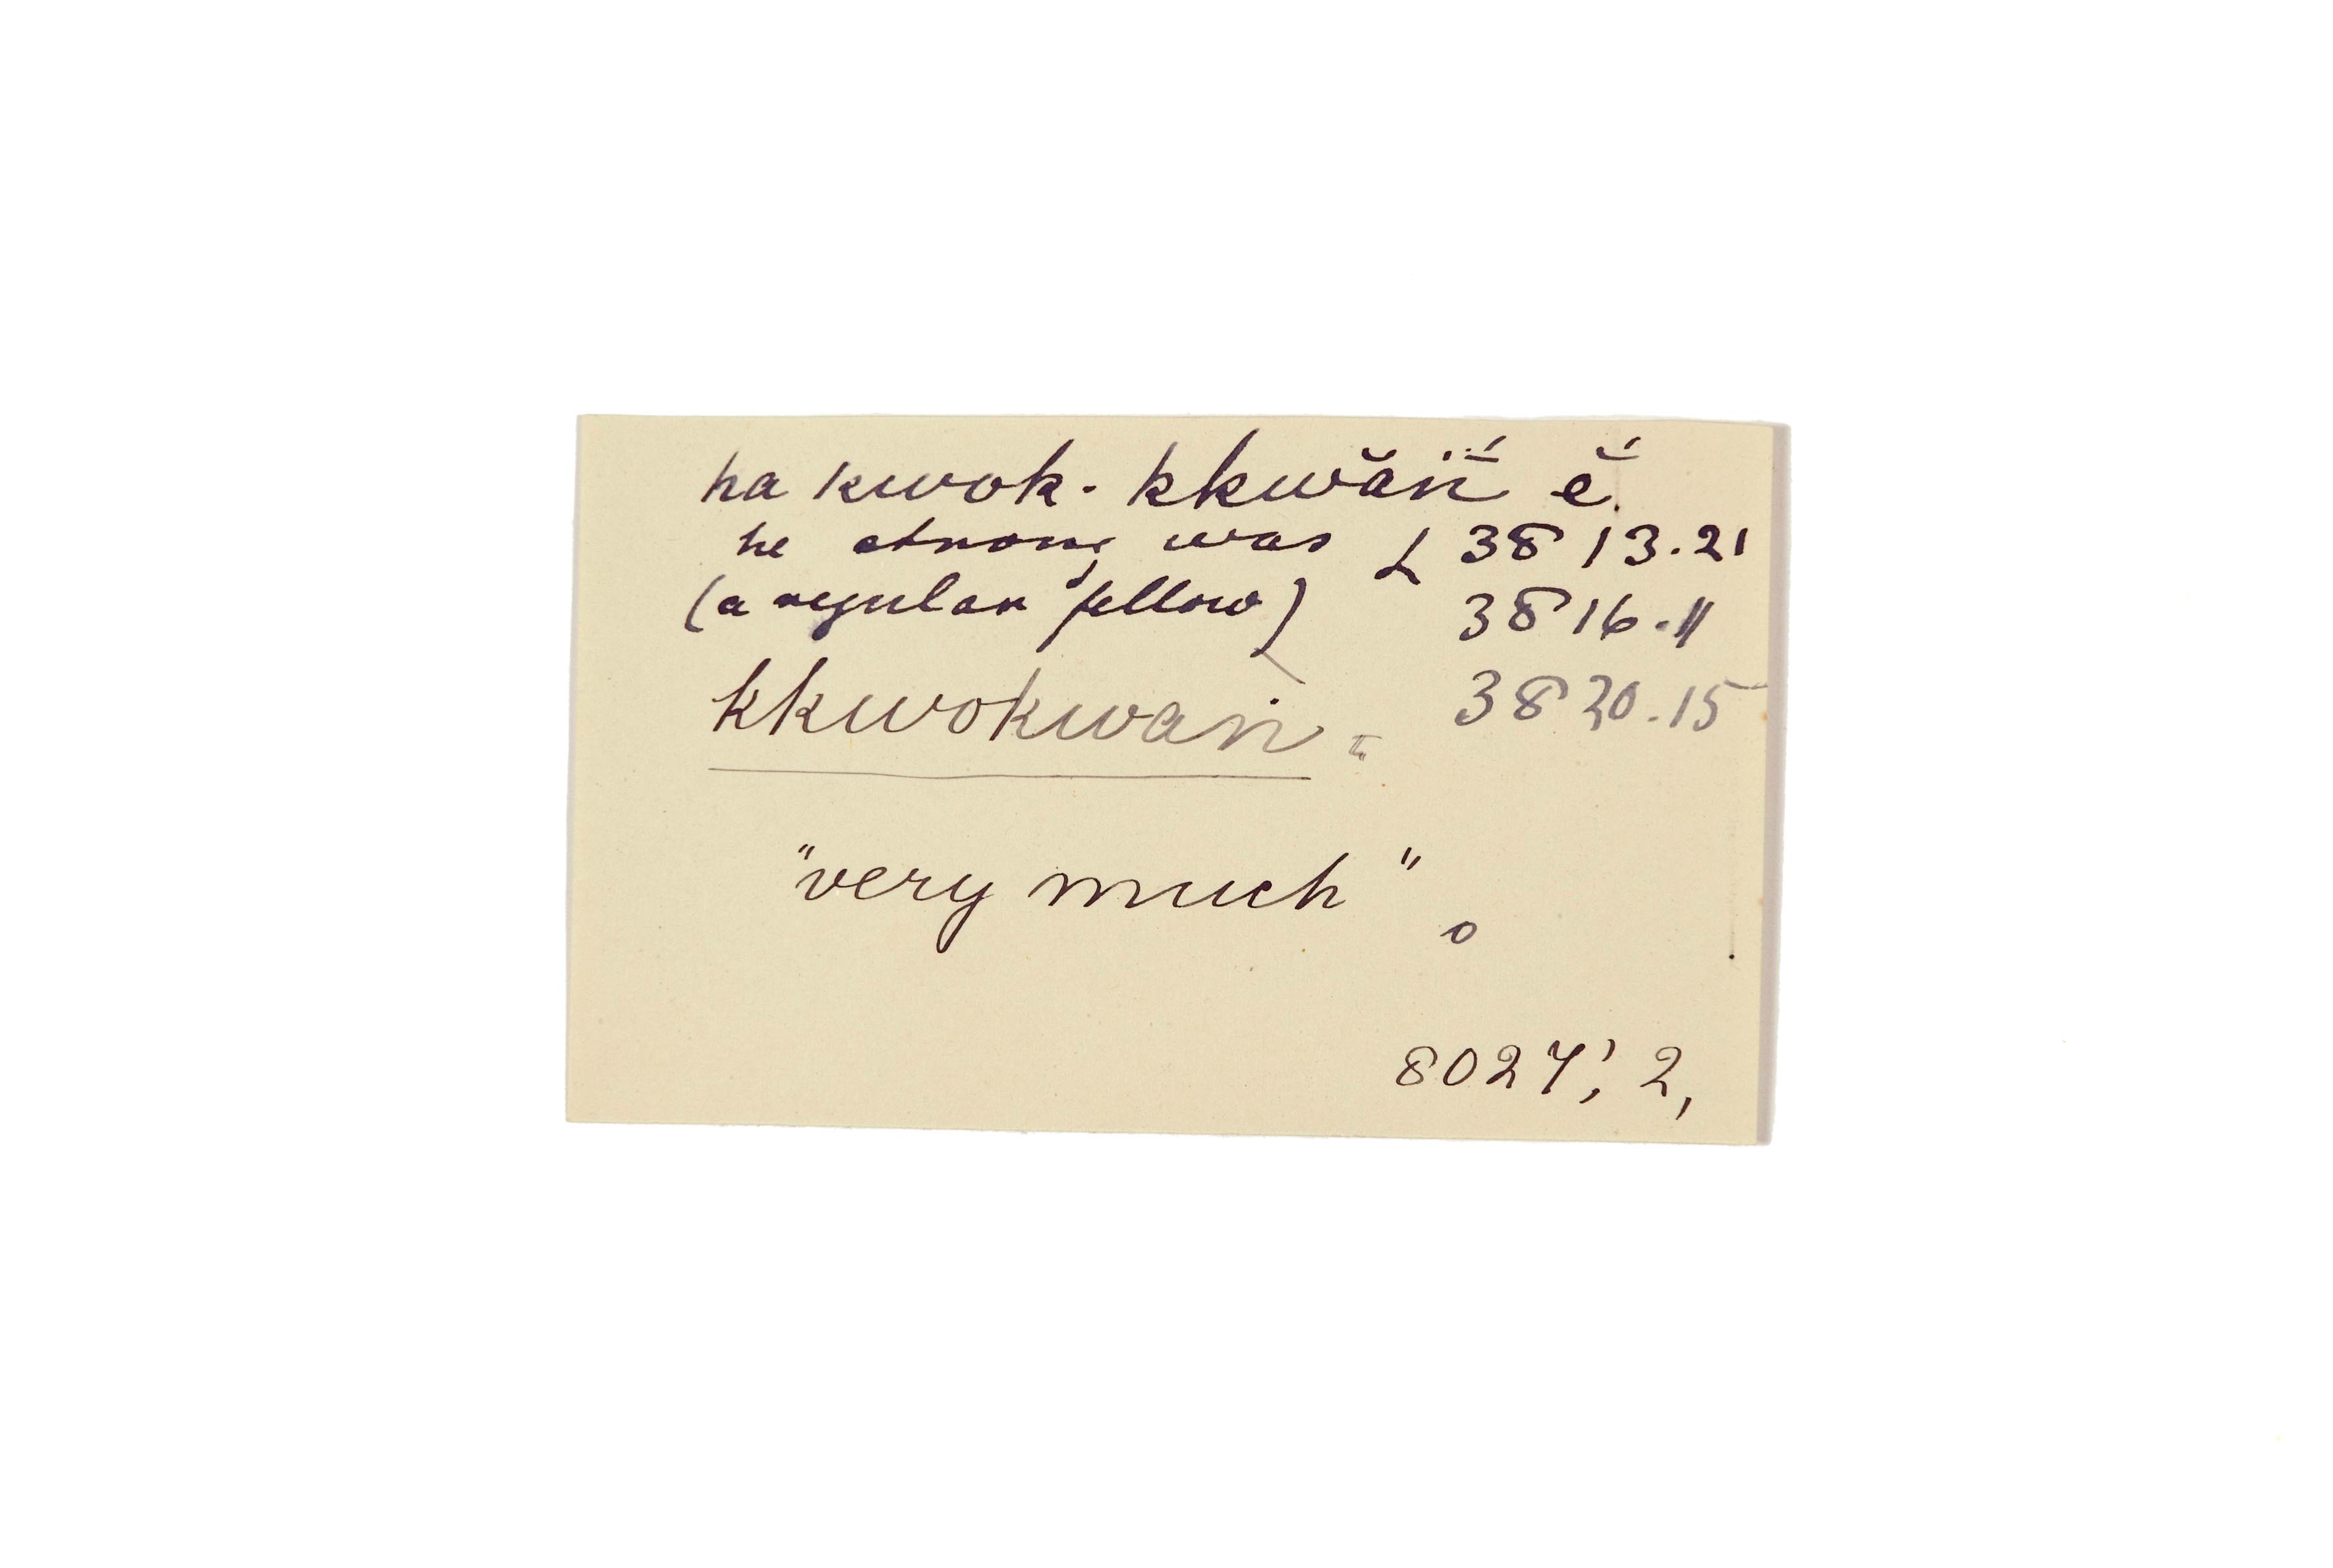 ha kwok. kkwăṅ́ ĕ́.
he strong was L 3813.21
(a regular fellow) 3816.11
kkwokwaṅ = 3820.15
"very much"
o
8027; 2,